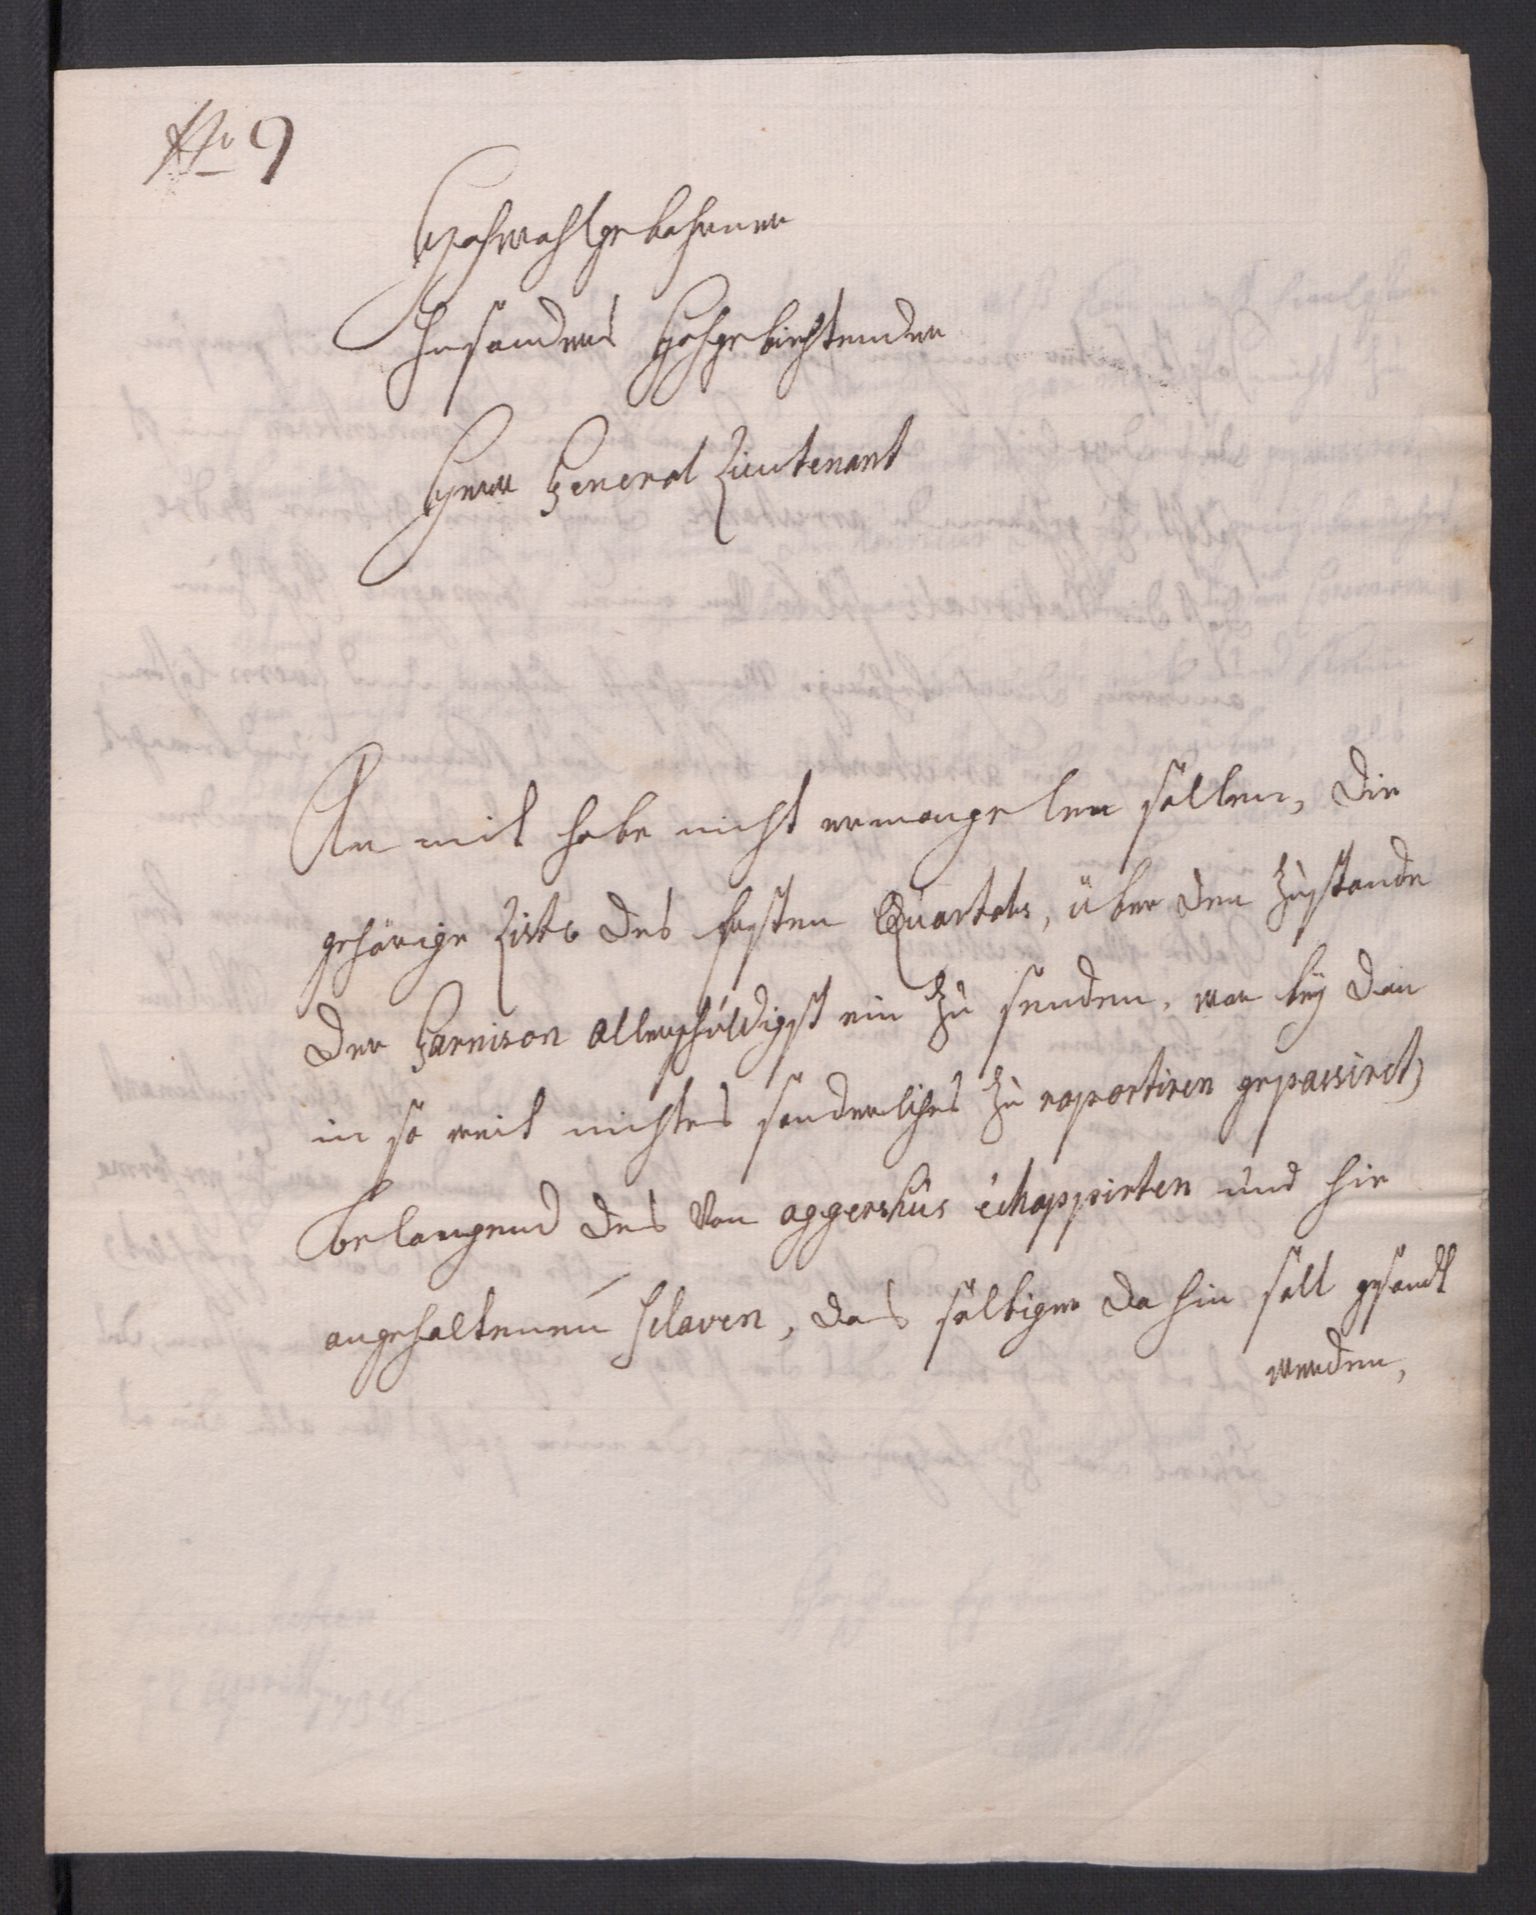 No 9
Hochwohlgebohrner
Insonders Hochgebiehtender
Herr General Lieutenant
An mit habe nicht ermangelen sollen, die
gehörige Liste des ersten Quartals, über den Zustande
der Garnison allerschuldigst ein zu senden, wor bey dan
in so weit nichtes sonderliches zu raportiren gepassiret,
belangend des von aggershus échappirten und hie
angehaltenen sclaven, das solbiger da hin soll gesandt
werden,